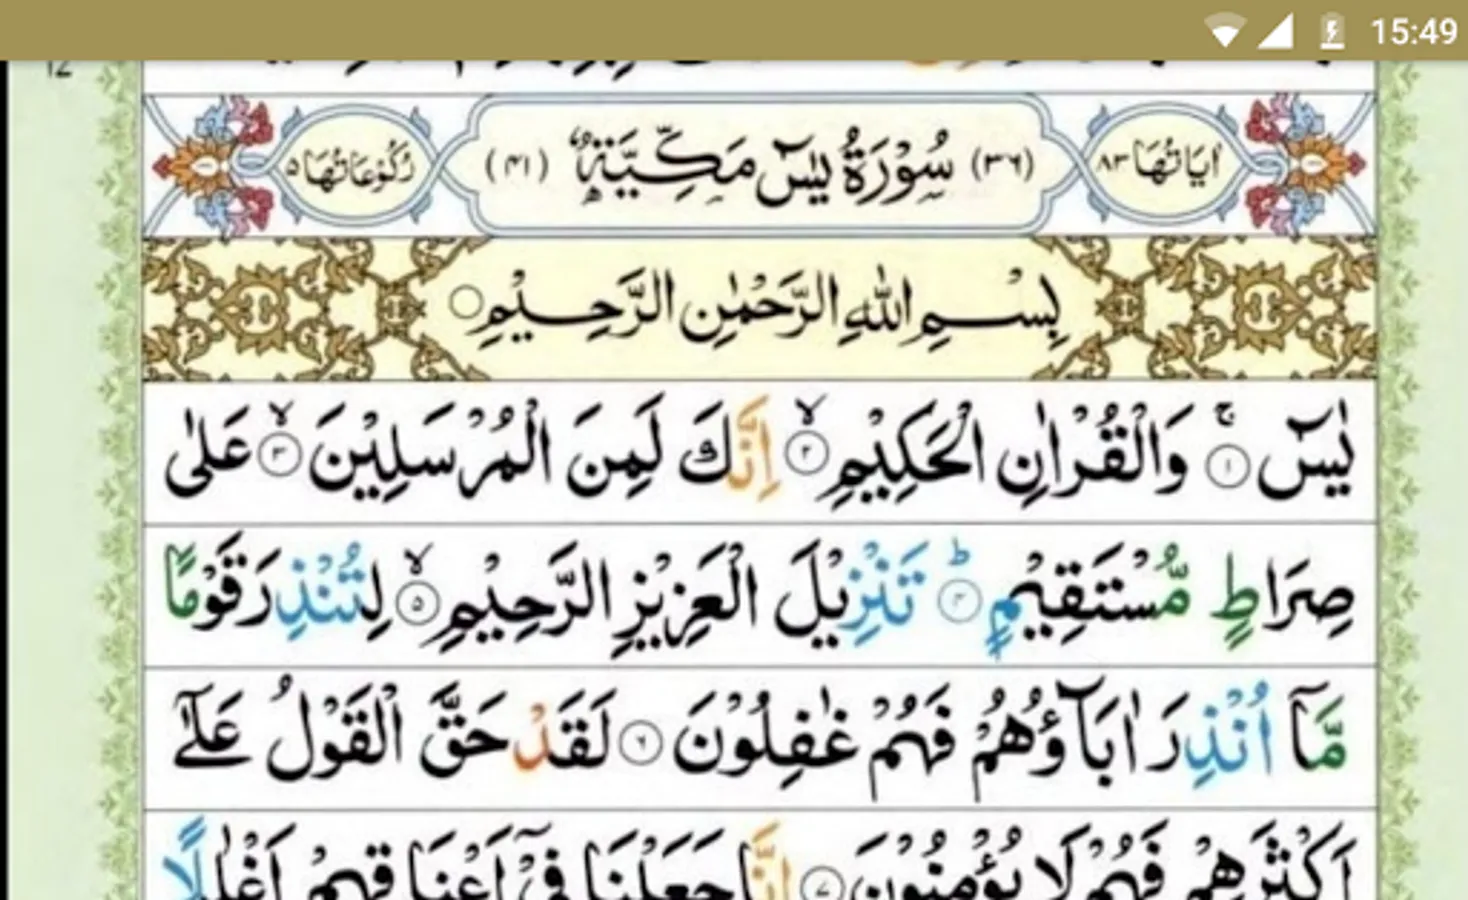 15:49
اٰيَاتُهَا ٨٣ (٣٦) سُوْرَةُ يٰسٓ مَكِّيَّةٌ (٤١) رُكُوْعَاتُهَا ٥
بِسْمِ اللهِ الرَّحْمٰنِ الرَّحِيْمِ ○
يٰسٓ ۚ ﴿١﴾ وَالْقُرْاٰنِ الْحَكِيْمِ ۙ ﴿٢﴾ اِنَّكَ لَمِنَ الْمُرْسَلِيْنَ ۙ ﴿٣﴾ عَلٰى
صِرَاطٍ مُّسْتَقِيْمٍ ؕ ﴿٤﴾ تَنْزِيْلَ الْعَزِيْزِ الرَّحِيْمِ ۙ ﴿٥﴾ لِتُنْذِرَ قَوْمًا
مَّاۤ اُنْذِرَ اٰبَآؤُهُمْ فَهُمْ غٰفِلُوْنَ ﴿٦﴾ لَقَدْ حَقَّ الْقَوْلُ عَلٰۤى
اَكْثَرِهِمْ فَهُمْ لَا يُؤْمِنُوْنَ ﴿٧﴾ اِنَّا جَعَلْنَا فِيْۤ اَعْنَاقِهِمْ اَغْلٰلًا